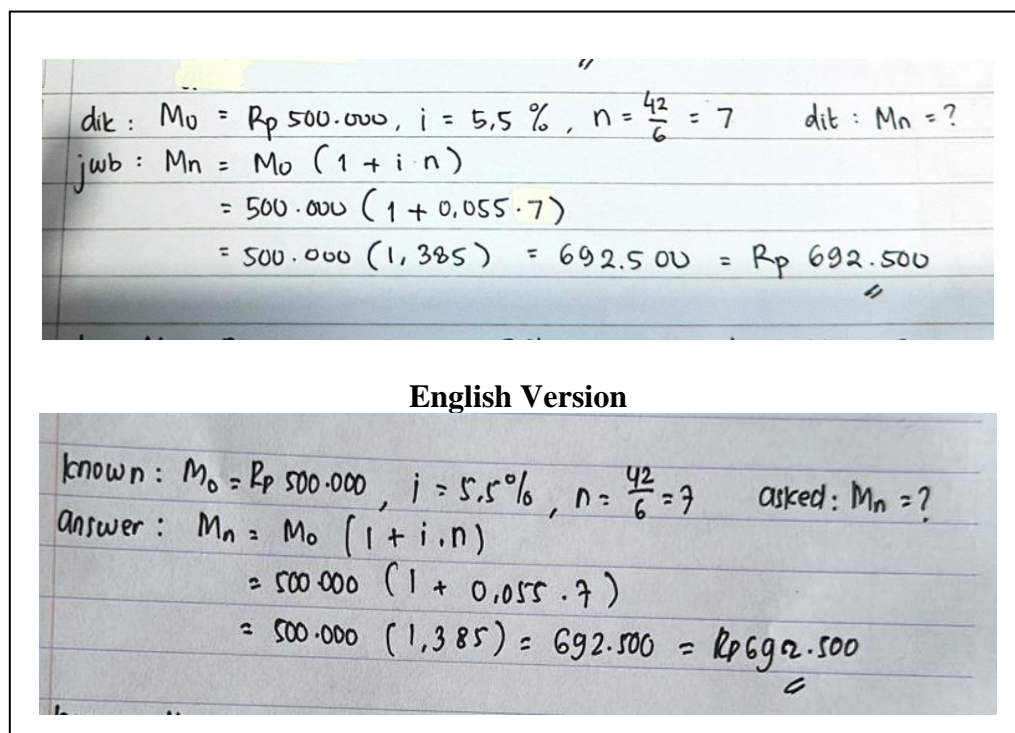 dik : M₀ = Rp 500.000, i = 5,5 %, n = 42/6 = 7 dit : Mn = ?
jwb : Mn = M₀ (1 + i · n)
= 500.000 (1 + 0,055 · 7)
= 500.000 (1,385) = 692.500 = Rp 692.500
English Version
known : M₀ = Rp 500.000, i = 5,5%, n = 42/6 = 7 asked : Mn = ?
answer : Mn = M₀ (1 + i . n)
= 500.000 (1 + 0,055 . 7)
= 500.000 (1,385) = 692.500 = Rp 692.500